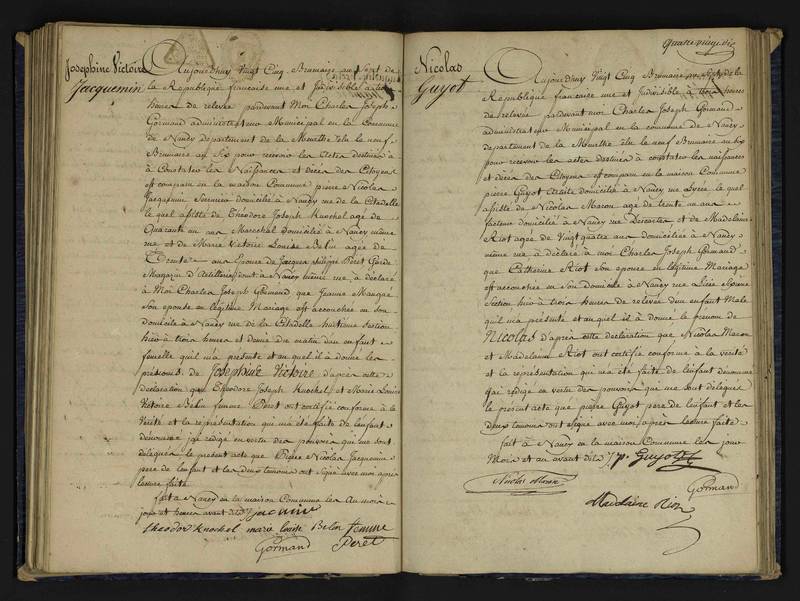 Josephine Victoire
Jacquemin
Aujourdhuy Vingt Cinq Brumaire an Sept de
la Republique francaise une et Indivisible a trois
heures de relevée pardevant Moi Charles Joseph
Gormand administrateur Municipal en la Commune
de Nancy departement de la Meurthe Elu le neuf
Brumaire an Six pour recevoir les Actes destinés a
à Constater les Naissances et décès des Citoyens
est comparu en la maison Commune pierre Nicolas
Jacquemin domicilié à Nancy rue de la Citadelle
le quel assisté de Théodore Joseph Knochel agé de
Quarante un ans Marechal domicilié à Nancy même
rue et de Marie Victoire Louise Belin agée de
Trente ans Epouse de Jacques philippe Peret Garde
Magazin d'Artillerie à Nancy même rue, à déclaré
à Moi Charles Joseph Gormand que Jeanne Mangin
Son epouse en légitime Mariage est accouchée en Son
domicile à Nancy rue de la Citadelle huitieme Section
hier à trois heures et demie du matin d'un enfant
femelle qu'il m'a présenté et au quel il à donné les
prénoms de Josephine Victoire d'après cette
déclaration que Théodore Joseph Knochel et Marie Louise
Victoire Belin femme Peret ont certifié conforme à la
Vérité et la représentation qui m'a été faite de l'enfant
dénommé j'ai rédigé en vertu des pouvoirs qui me sont
délégués le présent acte que Pierre Nicolas Jacquemin
pere de l'enfant et les deux temoins ont Signé avec moi après
lecture faite
fait à Nancy en la maison Commune les An mois
jour et heures avant dits
theodor knochel marie louise Belin femme
Gormand Peret
Quatre vingt dix
Nicolas
Guyot
Aujourdhuy Vingt Cinq Brumaire an Sept de la
Republique francaise une et Indivisible à trois heures
de relevée pardevant moi Charles Joseph Gormand
administrateur Municipal en la commune de Nancy
departement de la Meurthe élu le neuf Brumaire an six
pour recevoir les actes destinés à constater les naissances
et décès des Citoyens est comparu en la maison Commune
pierre Guyot domicilié à Nancy rue le quel
assisté de Nicolas Maron agé de trente un ans
facteur domicilié à Nancy rue Descartes et de Madelaine
Riot agée de Vingt quatre ans domiciliée à Nancy
même rue à déclaré à moi Charles Joseph Gormand
que Catherine Riot Son epouse en légitime Mariage
est accouchée en Son domicile à Nancy rue
Section hier à trois heures de relevée d'un enfant Male
qu'il m'a présenté et au quel il à donné le prénom de
Nicolas d'après cette déclaration que Nicolas Maron
et Madelaine Riot ont certifié conforme à la vérité
et la représentation qui m'a été faite de l'enfant dénommé
j'ai rédigé en vertu des pouvoirs qui me sont délégués
le présent acte que pierre Guyot pere de l'enfant et les
deux temoins ont signé avec moi après lecture faite
fait à Nancy en la maison Commune les jour
Mois et an avant dits p. Guyot
Nicolas Maron
Gormand
Madelaine Riot